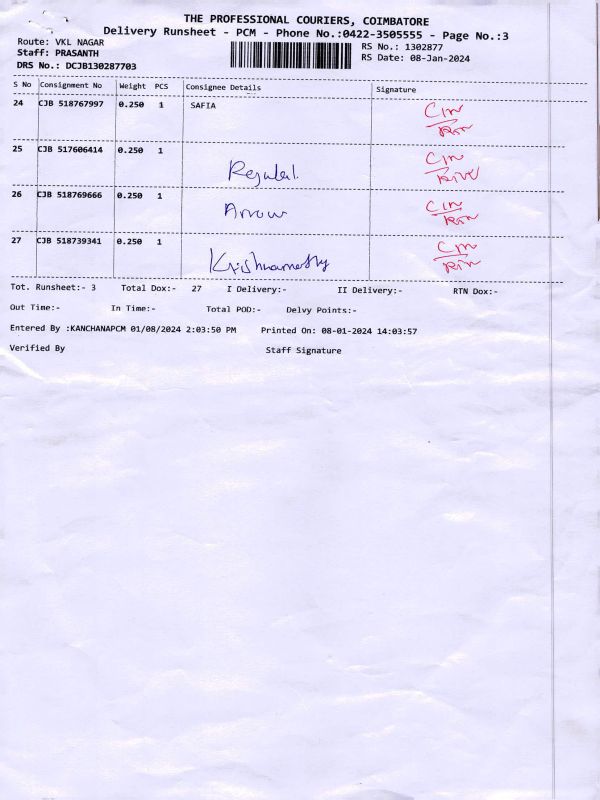 THE PROFESSIONAL COURIERS, COIMBATORE
Delivery Runsheet - PCM - Phone No.:0422-3505555 - Page No.:3
Route: VKL NAGAR
RS No.: 1302877
Staff: PRASANTH
RS Date: 08-Jan-2024
DRS No.: DCJB130287703
S No Consignment No Weight PCS Consignee Details Signature
24 CJB 518767997 0.250 1 SAFIA
25 CJB 517606414 0.250 1
26 CJB 518769666 0.250 1 Arrow
27 CJB 518739341 0.250 1
Tot. Runsheet:- 3 Total Dox:- 27 I Delivery:- II Delivery:- RTN Dox:-
Out Time:- In Time:- Total POD:- Delvy Points:-
Entered By :KANCHANAPCM 01/08/2024 2:03:50 PM Printed On: 08-01-2024 14:03:57
Verified By Staff Signature